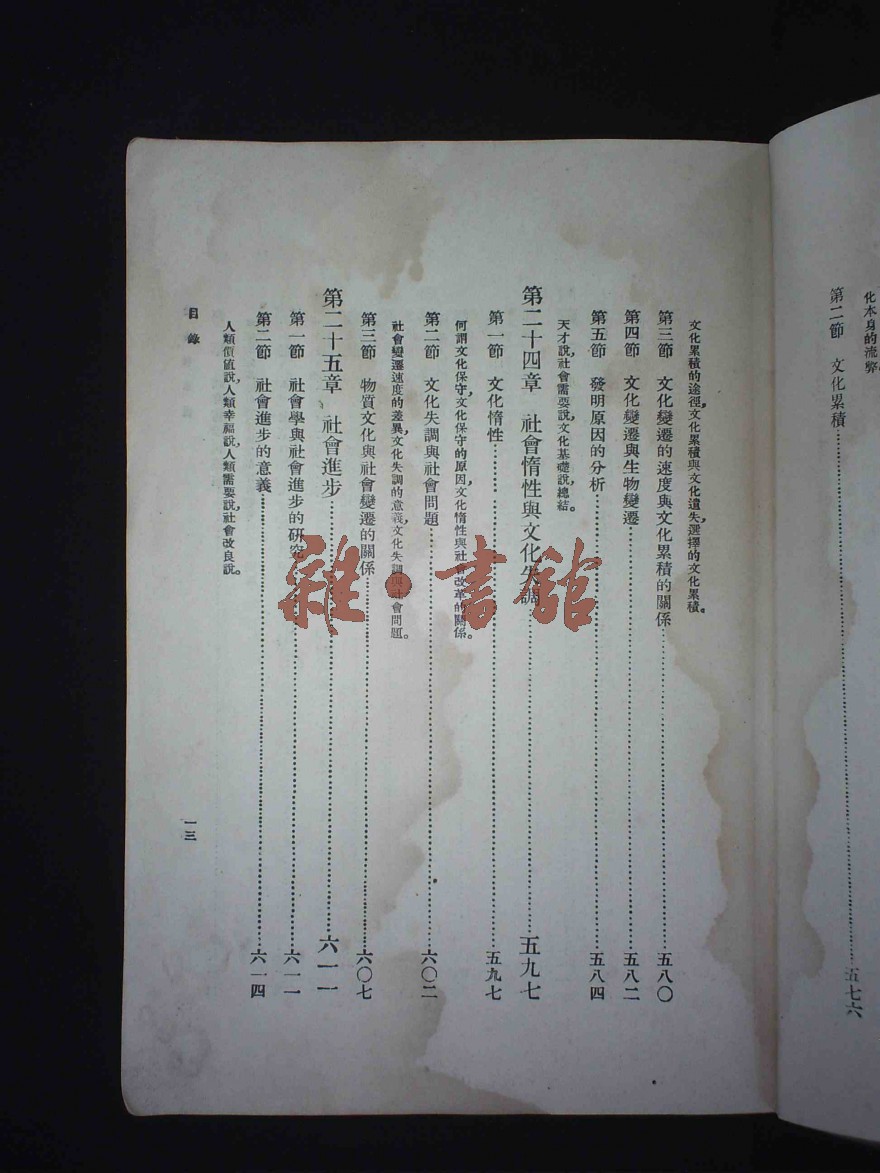 化本身的流弊。
第二節　文化累積……五七六
文化累積的途徑，文化累積與文化遺失，選擇的文化累積。
第三節　文化變遷的速度與文化累積的關係……五八〇
第四節　文化變遷與生物變遷……五八二
第五節　發明原因的分析……五八四
天才說，社會需要說，文化基礎說，總結。
第二十四章　社會惰性與文化失調……五九七
第一節　文化惰性……五九七
何謂文化保守，文化保守的原因，文化惰性與社會改革的關係。
第二節　文化失調與社會問題……六〇二
社會變遷速度的差異，文化失調的意義，文化失調與社會問題。
第三節　物質文化與社會變遷的關係……六〇七
第二十五章　社會進步……六一一
第一節　社會學與社會進步的研究……六一一
第二節　社會進步的意義……六一四
人類價值說，人類幸福說，人類需要說，社會改良說。
目錄
一三
雜·書館